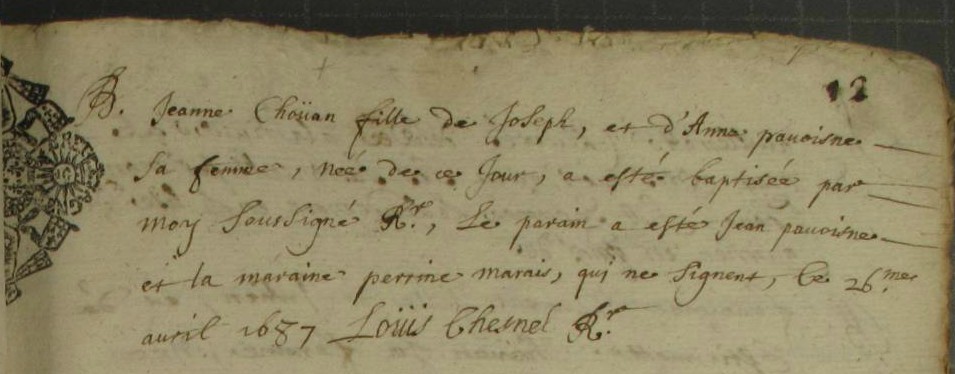 12
B. Jeanne Choüan fille de Joseph, et d'Anne pavoisne
sa femme, née de ce Jour, a esté baptisée par
moy soussigné Rr., Le parain a esté Jean pavoisne
et la maraine perrine marais, qui ne signent, le 26.me
avril 1687 Loüis Chesnel Rr.